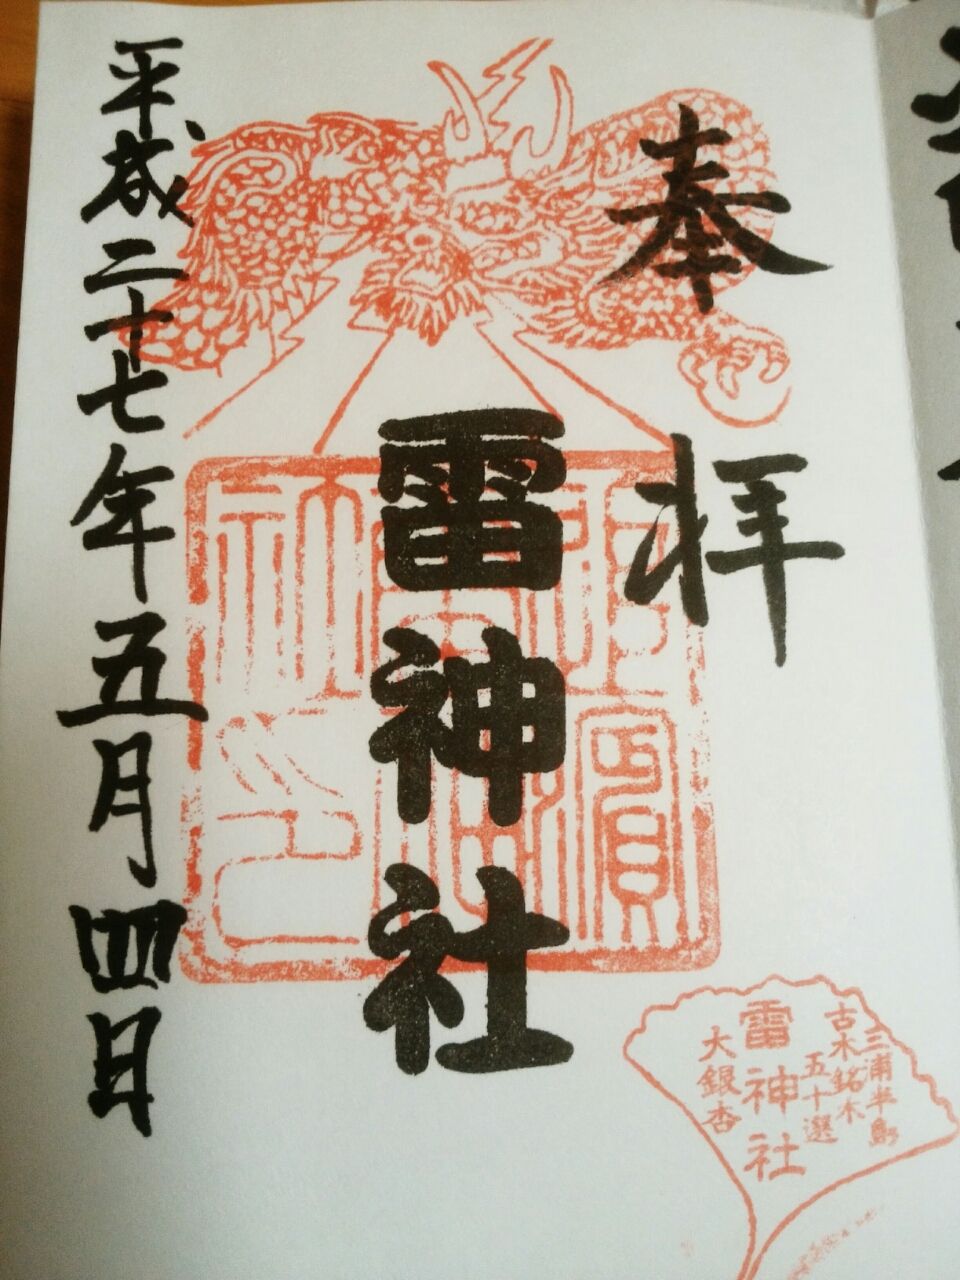 奉拝
雷神社
平成二十七年五月四日
三浦半島
古木銘木
五十選
雷神社
大銀杏